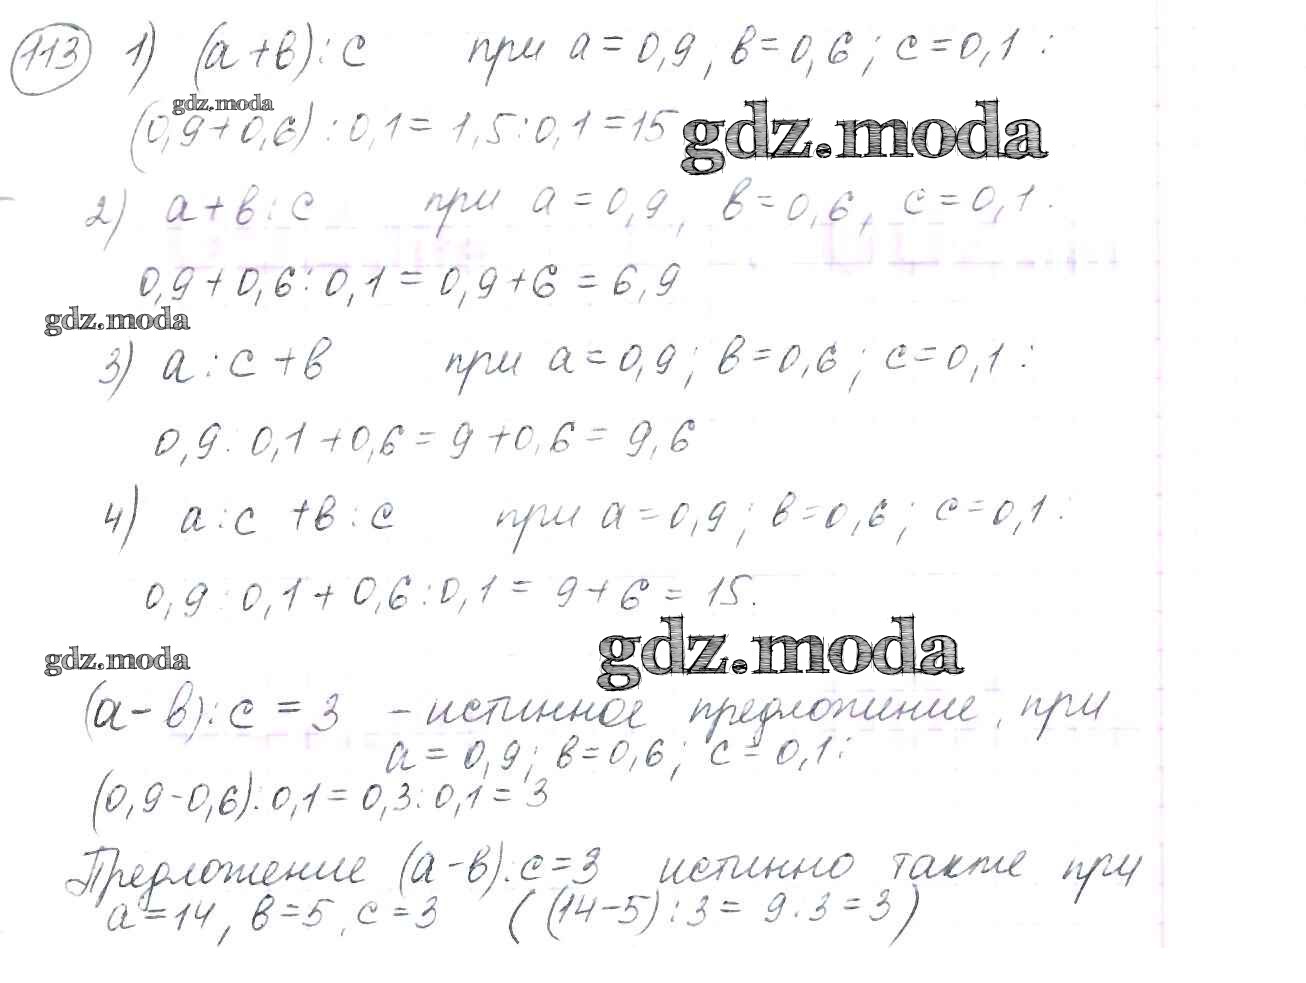 113 1) (а+в):с при а=0,9, в=0,6; с=0,1:
gdz.moda
(0,9+0,6):0,1=1,5:0,1=15
gdz.moda
2) а+в:с при а=0,9, в=0,6, с=0,1:
0,9+0,6:0,1=0,9+6=6,9
gdz.moda
3) а:с+в при а=0,9; в=0,6; с=0,1:
0,9:0,1+0,6=9+0,6=9,6
4) а:с+в:с при а=0,9; в=0,6; с=0,1:
0,9:0,1+0,6:0,1=9+6=15.
gdz.moda
gdz.moda
(а-в):с=3 - истинное предложение, при
а=0,9; в=0,6; с=0,1:
(0,9-0,6):0,1=0,3:0,1=3
Предложение (а-в):с=3 истинно также при
а=14, в=5, с=3 ((14-5):3=9:3=3)